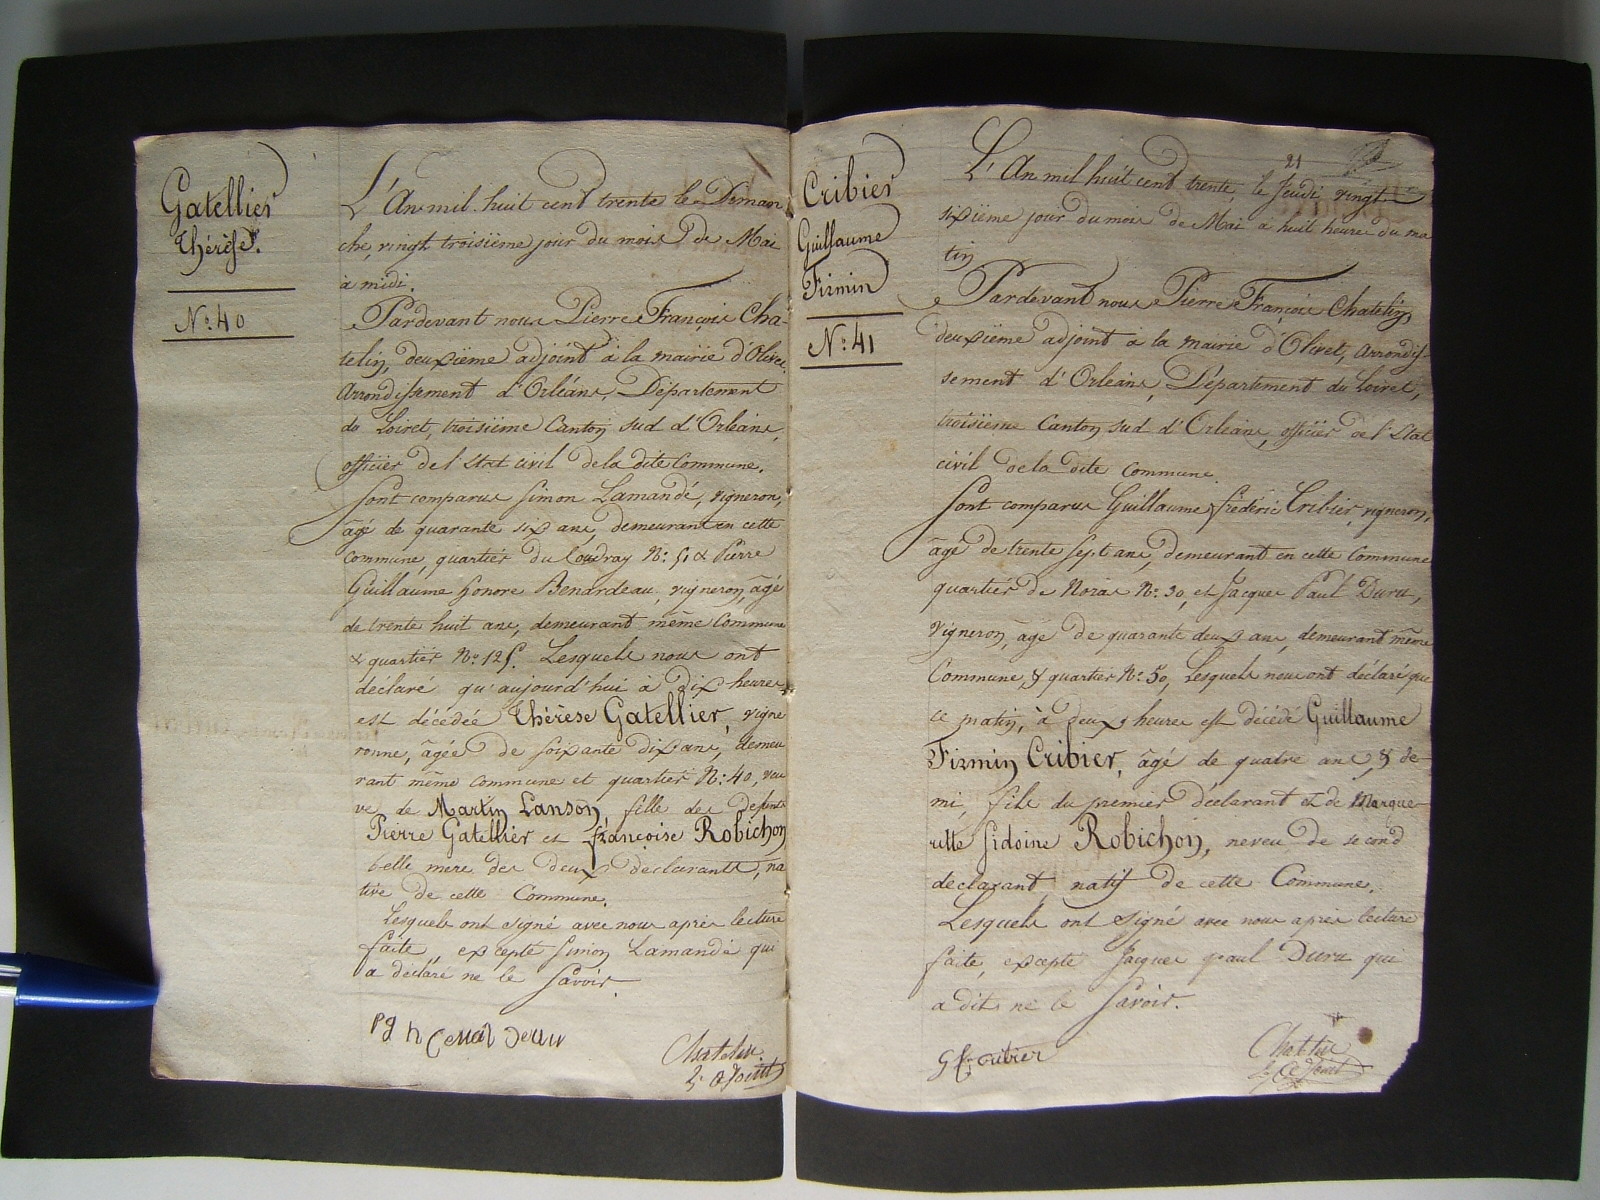 Gatellier
Thérèse.
N.o 40
L'An mil huit cent trente le Diman
che, vingt troisième jour du mois de Mai
à midi.
Pardevant nous Pierre François Cha-
telin, deuxième adjoint à la mairie d'Olivet,
Arrondissement d'Orléans, Département
du Loiret, troisième Canton sud d'Orléans,
officier de l'Etat civil dela dite Commune.
Sont comparus Simon Lamandé, vigneron,
âgé de quarante six ans, demeurant en cette
Commune, quartier du Coudray N.o 51 & Pierre
Guillaume honore Benardeau, vigneron, âgé
de trente huit ans, demeurant même Commune
& quartier N.o 125. Lesquels nous ont
déclaré qu'aujourd'hui à dix heures
est décédée Thérèse Gatellier, vigne
ronne, âgée de soixante dix ans, demeu
rant même commune et quartier N.o 40, veu
ve de Martin Lanson, fille des defunts
Pierre Gatellier et françoise Robichon
belle mere des deux declarants, na
tive de cette Commune.
Lesquels ont signé avec nous après lecture
faite, excepté Simon Lamandé qui
a déclaré ne le Savoir.
Chatelin
2e adjoint
21
Cribier
Guillaume
Firmin
N.o 41
L'An mil huit cent trente, le Jeudi vingt
sixième jour du mois de Mai a huit heures du ma
tin
Pardevant nous Pierre François Chatelin
deuxième adjoint à la mairie d'Olivet, arrondis-
sement d'Orléans, Département du Loiret,
troisième Canton sud d'Orléans, officier de l'Etat
civil de la dite Commune.
Sont comparus Guillaume frédéric Cribier, vigneron,
âgé de trente sept ans, demeurant en cette Commune
quartier de Noras N.o 30, et Jacques Paul Duru,
vigneron, âgé de quarante deux ans, demeurant même
Commune, & quartier N.o 50, Lesquels nous ont déclaré que
ce matin, à deux heures est décédé Guillaume
Firmin Cribier, âgé de quatre ans & de-
mi, fils du premier déclarant et de Margue-
ritte Sidoine Robichon, neveu de second
declarant natif de cette Commune.
Lesquels ont signé avec nous après lecture
faite, excepté Jacques paul Duru qui
a dit ne le Savoir.
G f cribier
Chatelin
2e adjoint